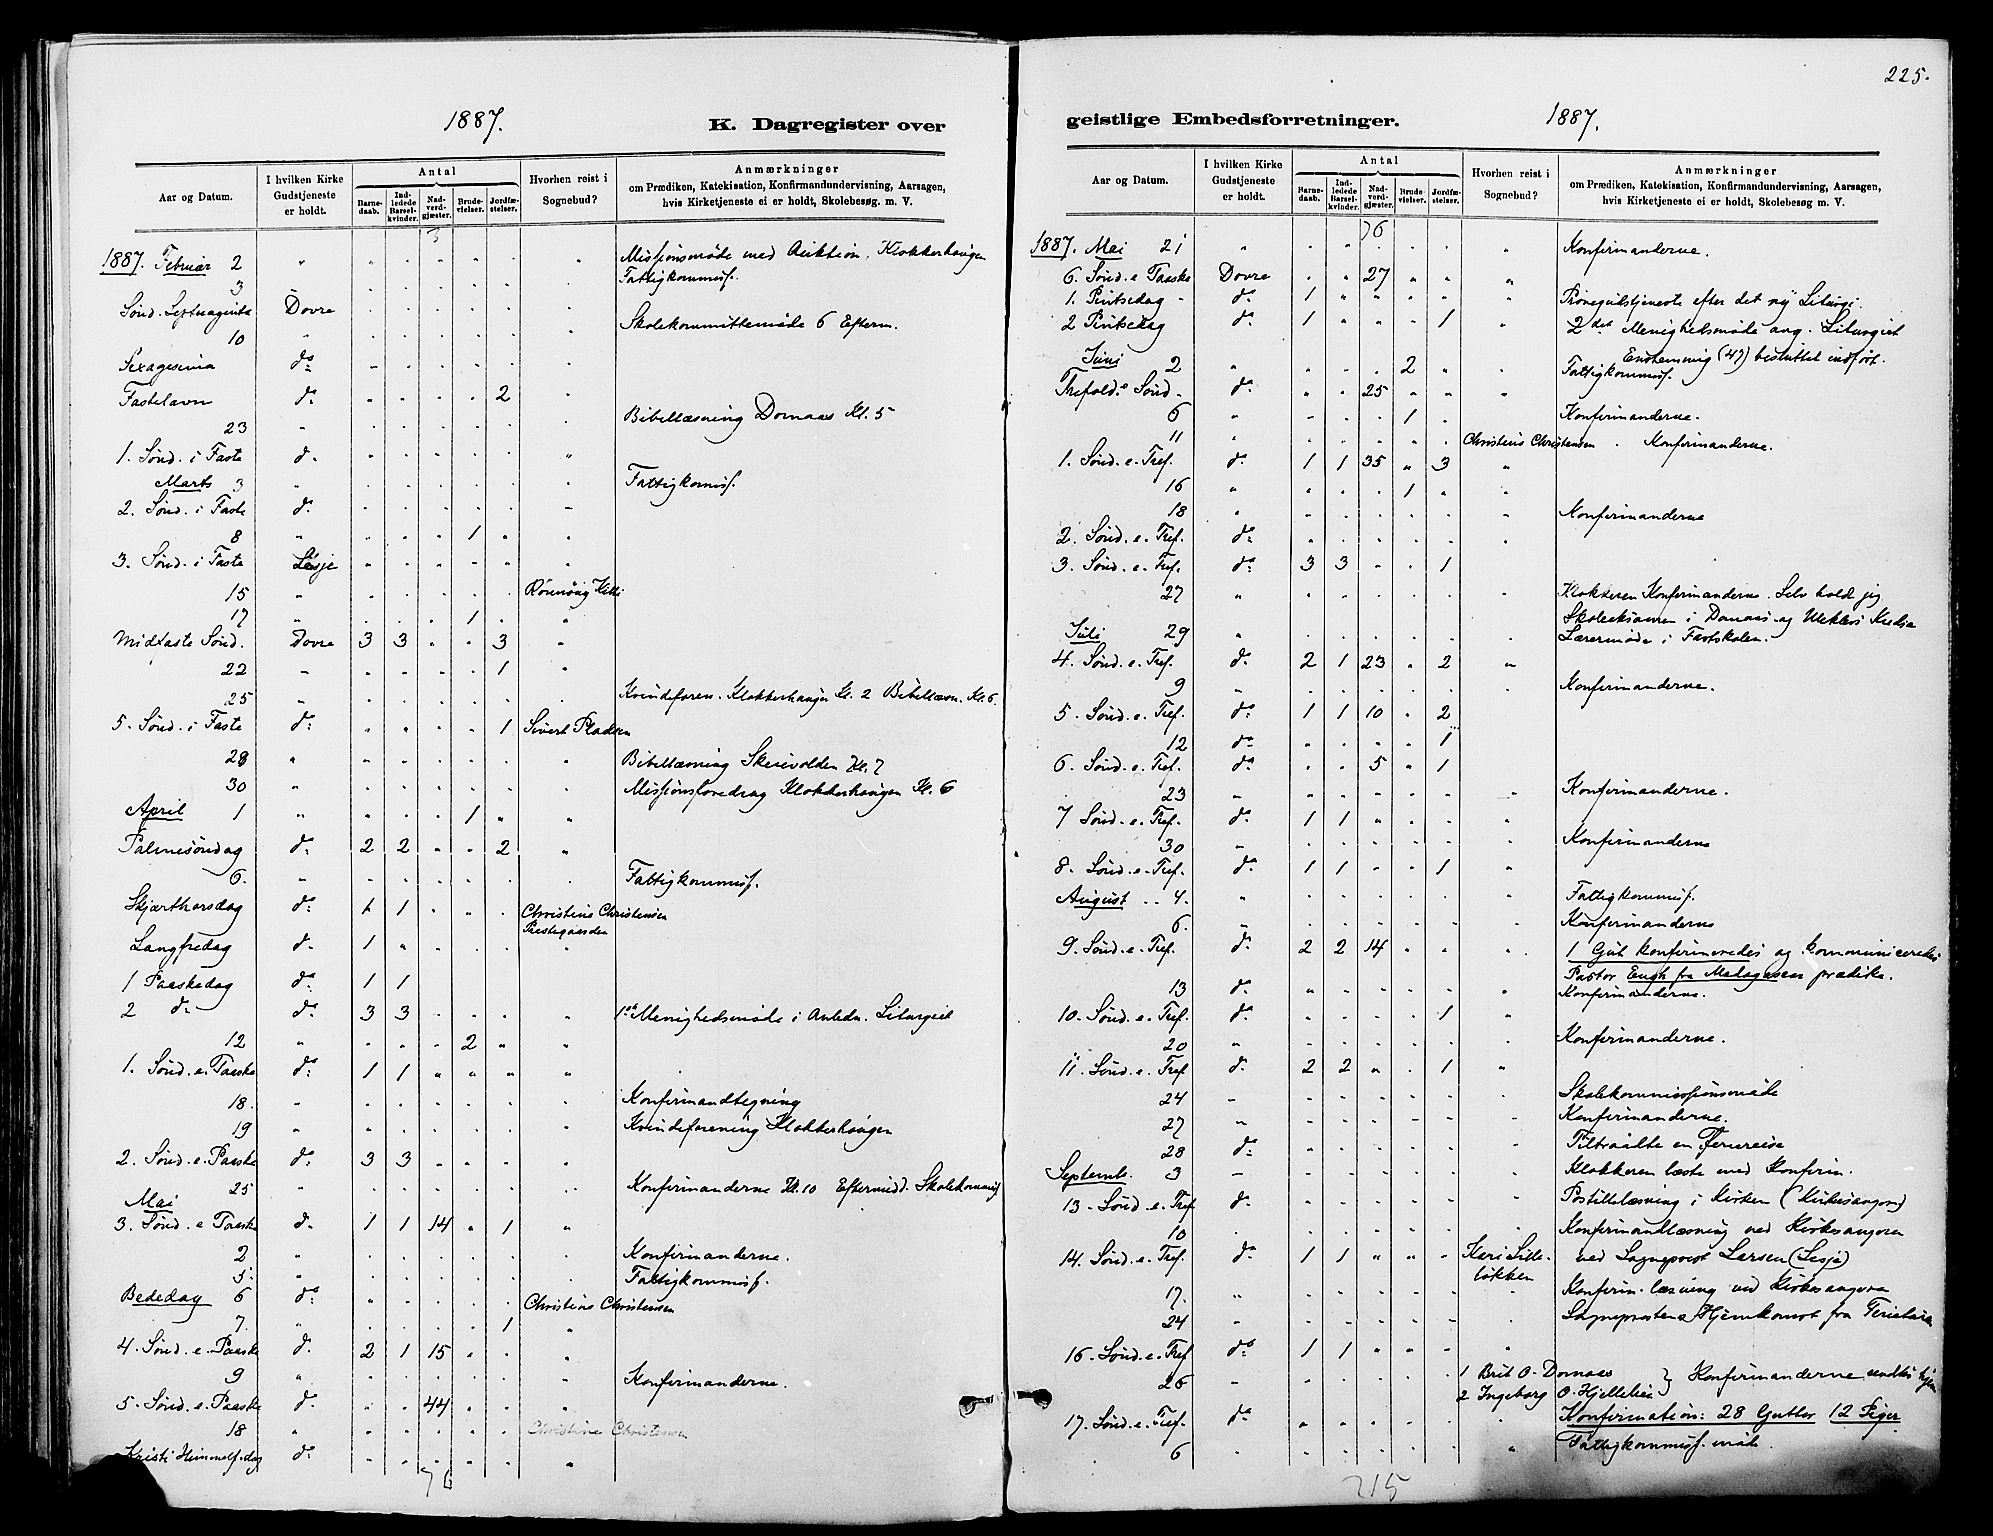 1887.
K. Dagregister over
Aar og Datum.
I hvilken Kirke Gudstjeneste er holdt.
Antal
Barnedaab.
Indledede Barselkvinder.
Nadverdgjæster.
Brudevielser.
Jordfæstelser.
Hvorhen reist i Sognebud?
Anmærkninger
om Prædiken, Katekisation, Konfirmandundervisning, Aarsagen,
hvis Kirketjeneste ei er holdt, Skolebesøg. m. V.
3
1887. Februar 2 " Missionsmøde med Auktion. Klokkerhaugen
3 Fattigkommisf.
Sønd. Septuagesima Dovre
10 " Skolekommittemøde 6 Efterm.
Sexagesima do
Fastelavn do 2
23 " Bibellæsning Domaas Kl. 5
1. Sønd. i Faste do
Marts 3 " Fattigkomisf.
2. Sønd. i Faste do
8 " 1
3. Sønd. i Faste Lesje
15 "
17 " 1
Midfaste Sønd. Dovre 3 3 3
22 " 1
25 " Kvindeforen. Klokkerhaugen Kl. 2 Bibellæsn. Kl. 6.
5. Sønd. i Faste do 1 Sivert
28 " Bibellæsning Kl. 7
30 " Missionsforedrag Klokkerhaugen Kl. 6
April 1 " 1
Palmesøndag do 2 2 2
6. " Fattigkommisf.
Skjærthorsdag do 1 1 Christine Christensen
Præstegaarden
Langfredag do 1
1 Paaskedag do 1 1
2 do do 3 3 1ste Menighedsmøde i Anledn. Liturgiet
12 " 2
1. Sønd. e. Paaske do 1 1
18. " Konfirmandtegning
19 " Kvindeforening Klokkerhaugen
2. Sønd. e. Paaske do 3 3
25 " Konfirmanderne Kl. 10 Eftermidd. Skolekommisf
Mai
3. Sønd. e Paaske do 1 1 14 1
2 " Konfirmanderne.
5. " Fattigkommisf.
Bededag 6 do Christine Christensen
7. 1
4. Sønd. e. Paaske do 2 1 15
9 " Konfirmanderne.
5. Sønd. e. Paaske do 44
18 " Christine Christensen
Kristi Himmelf.dag do
76
225.
geistlige Embedsforretninger.
1887.
Aar og Datum.
I hvilken Kirke Gudstjeneste er holdt.
Antal
Barnedaab.
Indledede Barselkvinder.
Nadverdgjæster.
Brudevielser.
Jordfæstelser.
Hvorhen reist i Sognebud?
Anmærkninger
om Prædiken, Katekisation, Konfirmandundervisning, Aarsagen,
hvis Kirketjeneste ei er holdt, Skolebesøg m. V.
76
1887. Mai 21 " Konfirmanderne.
6. Sønd. e Paaske Dovre 27
1. Pintsedag do 1 Prøvegudstjeneste efter det ny Liturgi.
2 Pintsedag do 1 1 2det Menighedsmøde ang. Liturgiet
Enstemmig (49) besluttet indført.
Juni 2 " 2 Fattigkommisf.
Trefold. Sønd. do 25
6 " 1 Konfirmanderne.
11 " Christine Christensen. Konfirmanderne.
1. Sønd. e. Tref. do 1 1 35 3
16 " 1
18 " Konfirmanderne
2. Sønd. e. Tref. do
3. Sønd. e. Tref. do 3 3 1
27 " Klokkeren Konfirmanderne. Selv holdt jeg
Skoleeksamen i Domaas og
Juli 29 " Lærermøde i Fastskolen.
4. Sønd. e. Tref. do 2 1 23 2
9 " Konfirmanderne.
5. Sønd. e. Tref. do 1 1 10 2
12 do 1
6. Sønd. e. Tref. do 5 1
23 " Konfirmanderne.
7 Sønd. e. Tref. do 1 1
30 " Konfirmanderne
8. Sønd. e. Tref. do 1 1 1
August 4. " Fattigkommisf.
6. " Konfirmanderne
9. Sønd. e. Tref. do 2 2 14 1 Gut konfirmeredes og kommuniceredes
Pastor Engh fra Madagascar prædike.
13 do Konfirmanderne.
10. Sønd. e. Tref. do 1
20 " Konfirmanderne.
11. Sønd. e. Tref do 2 2 1
24 " Skolekommissionsmøde
27 " Konfirmanderne.
28 do Tiltraadte en Feriereise
Septemb. 3 Klokkeren læste med Konfirm.
13. Sønd. e. Tref do Postillelæsning i Kirken (Kirkesangeren)
10 Konfirmandlæsning ved Kirkesangeren
14. Sønd. e. Tref. do 1 1 Kari Lilleløkken ved Sogneprest Larsen (Lesje)
17. " Konfirm. læsning ved Kirkesangeren
24 " Sogneprestens Hjemkomst fra
16. Sønd. e. Tref do 1 1
26 1 Brit O. Domaas } Konfirmanderne
2 Ingeborg O.
17. Sønd. e. Tref. do Konfirmation: 28 Gutter 12 Piger
6 Fattigkommisf. møde.
215